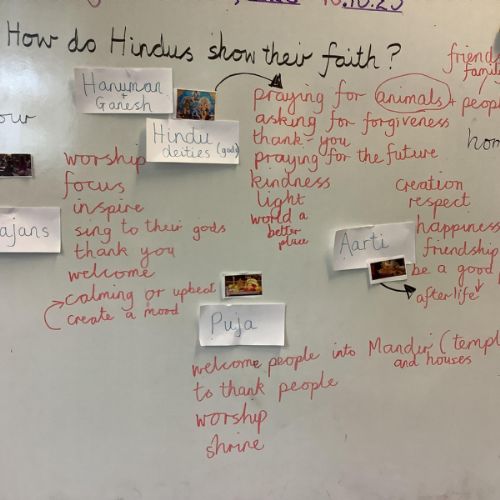 10.10.23
How do Hindus show their faith?
Hanuman
+
Ganesh
Hindu
deities (gods)
praying for animals + people
asking for forgiveness
thank-you
praying for the future
kindness
light
world a
better
place
friends
family
worship
focus
inspire
sing to their gods
thank you
welcome
calming or upbeat
create a mood
creation
respect
happiness
friendship
be a good
afterlife
Aarti
Puja
welcome people into Mandir (temp
and houses
to thank people
worship
shrine